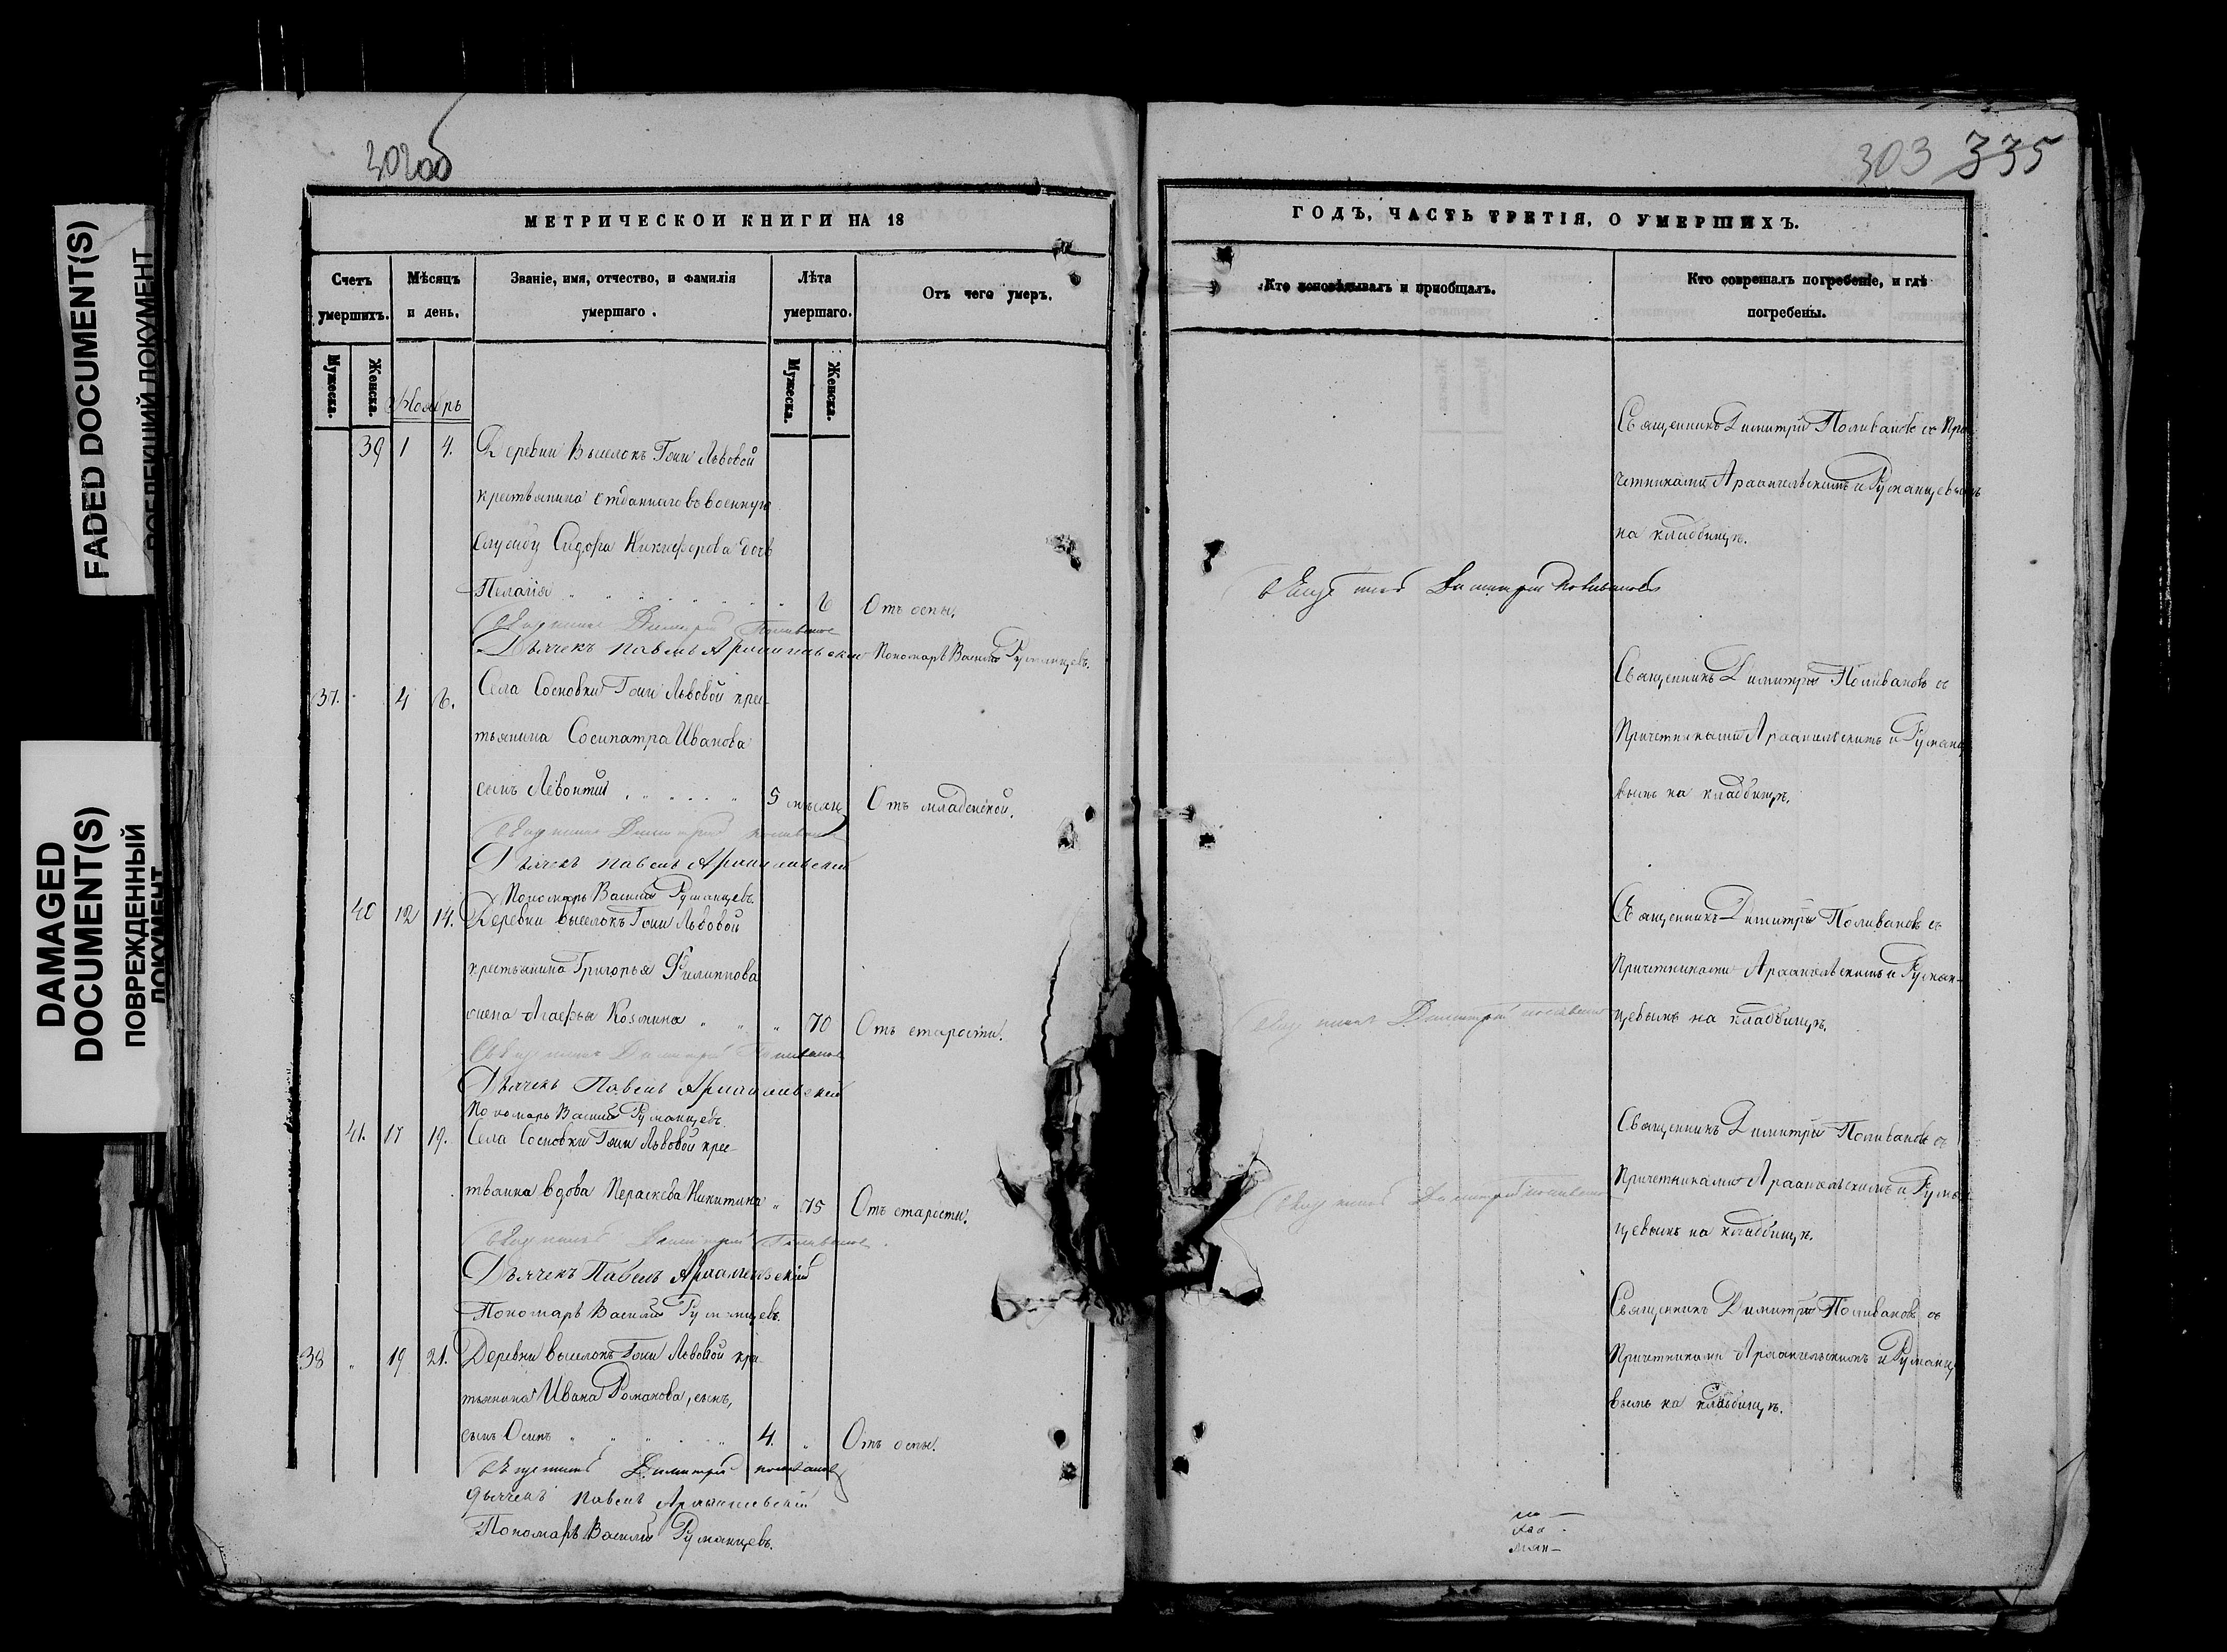 302об
МЕТРИЧЕСКОЙ КНИГИ НА 18
Счетъ умершихъ.
Мѣсяцъ и день.
Званіе, имя, отчество, и фамилія умершаго.
Лѣта умершаго.
Отъ чего умеръ.
Мужеска.
Женска.
Мужеска.
Женска.
Ноябрь
39 1 4. Деревни Выселокъ Гжи Львовой
крестьянина отданнаго въ военную
службу Сидора Никифорова дочь
Пелагія 6 Отъ оспы.
Священникъ Димитрій Поливановъ
Дьячекъ Павелъ Архангельскій Пономарь Василій Румянцевъ.
37. 4 6. Села Сосновки Гжи Львовой крес-
тьянина Сосипатра Иванова
сынъ Левонтій 5 мѣсяц Отъ младенской.
Священникъ Димитрій Поливановъ
Дьячекъ Павелъ Архангельскій
Пономарь Василій Румянцевъ.
40 12 14. Деревни выселокъ Гжи Львовой
крестьянина Григорья Филиппова
жена Агафья Козмина 70 Отъ старости.
Священникъ Димитрій Поливановъ
Дьячекъ Павелъ Архангельскій
Пономарь Василій Румянцевъ.
41. 17 19. Села Сосновки Гжи Львовой крес-
тьянка вдова Параскева Никитина 75 Отъ старости.
Священникъ Димитрій Поливановъ
Дьячекъ Павелъ Архангельскій
Пономарь Василій Румянцевъ.
38 19 21. Деревни выселокъ Гжи Львовой кре-
тьянина Ивана Романова, сынъ,
сынъ Осипъ 4. Отъ оспы.
Священникъ Димитрій Поливановъ
дьячекъ Павелъ Архангельскій
Пономарь Василій Румянцевъ.
303 335
ГОДЪ, ЧАСТЬ ТРЕТІЯ, О УМЕРШИХЪ.
Кто исповѣдывалъ и приобщалъ.
Кто соврешалъ погребеніе, и гдѣ погребены.
Священникъ Димитрій Поливановъ съ При
четниками Архангельскимъ и Румянцевымъ
на кладбищѣ.
Священникъ Димитрій Поливановъ
Священникъ Димитрій Поливановъ съ
Причетниками Архангельскимъ и Румянц
вымъ на кладбищѣ.
Священникъ Димитрій Поливановъ съ
Причетниками Архангельскимъ и Румян-
цевымъ на кладбищѣ.
Священникъ Димитрій Поливановъ
Священникъ Димитрій Поливановъ съ
Причетниками Архангельскимъ и Румя
цевымъ на кладбищѣ.
Священникъ Димитрій Поливановъ
Священникъ Димитрій Поливановъ съ
Причетниками Архангельскимъ и Румянц
вымъ на кладбищѣ.
мян-
FADED DOCUMENT(S)
DAMAGED DOCUMENT(S)
ПОВРЕЖДЕННЫЙ ДОКУМЕНТ